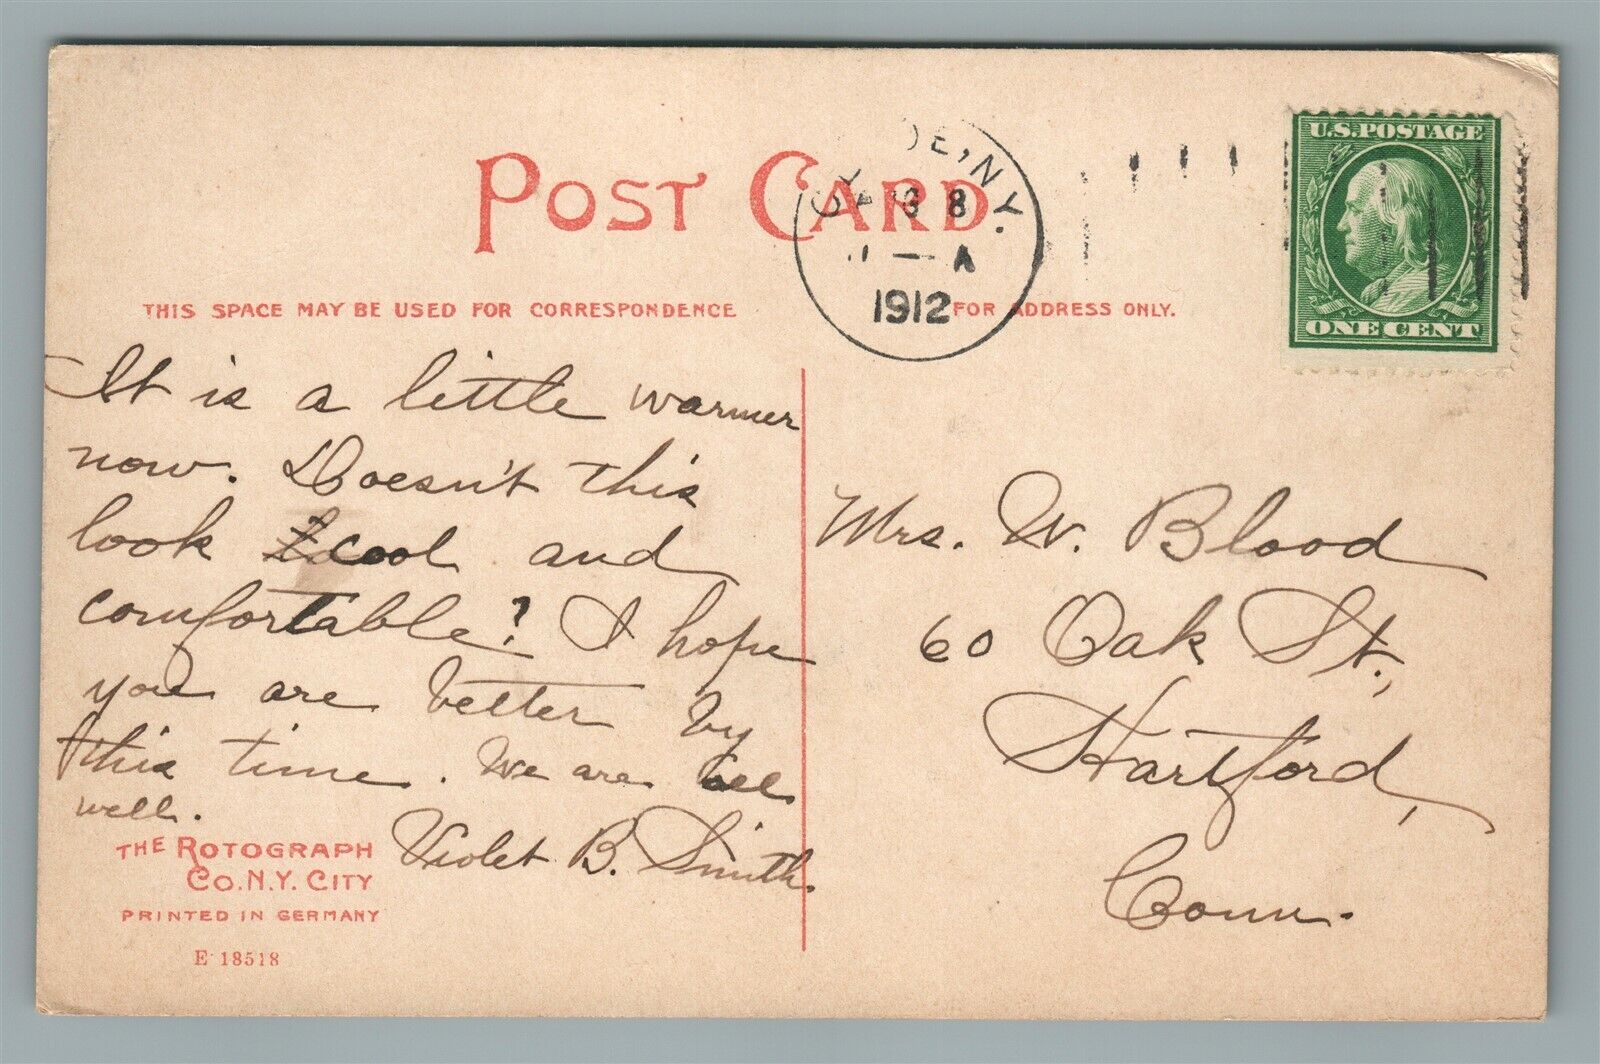 POST CARD
E, N.Y.
G 8
A
1912
U.S. POSTAGE
ONE CENT
THIS SPACE MAY BE USED FOR CORRESPONDENCE
FOR ADDRESS ONLY.
It is a little warmer
now. Doesn't this
look cool and
comfortable? I hope
you are better by
this time. We are all
well.
Violet B. Smith.
Mrs. W. Blood
60 Oak St.,
Hartford,
Conn.
THE ROTOGRAPH
CO. N.Y. CITY
PRINTED IN GERMANY
E 18518